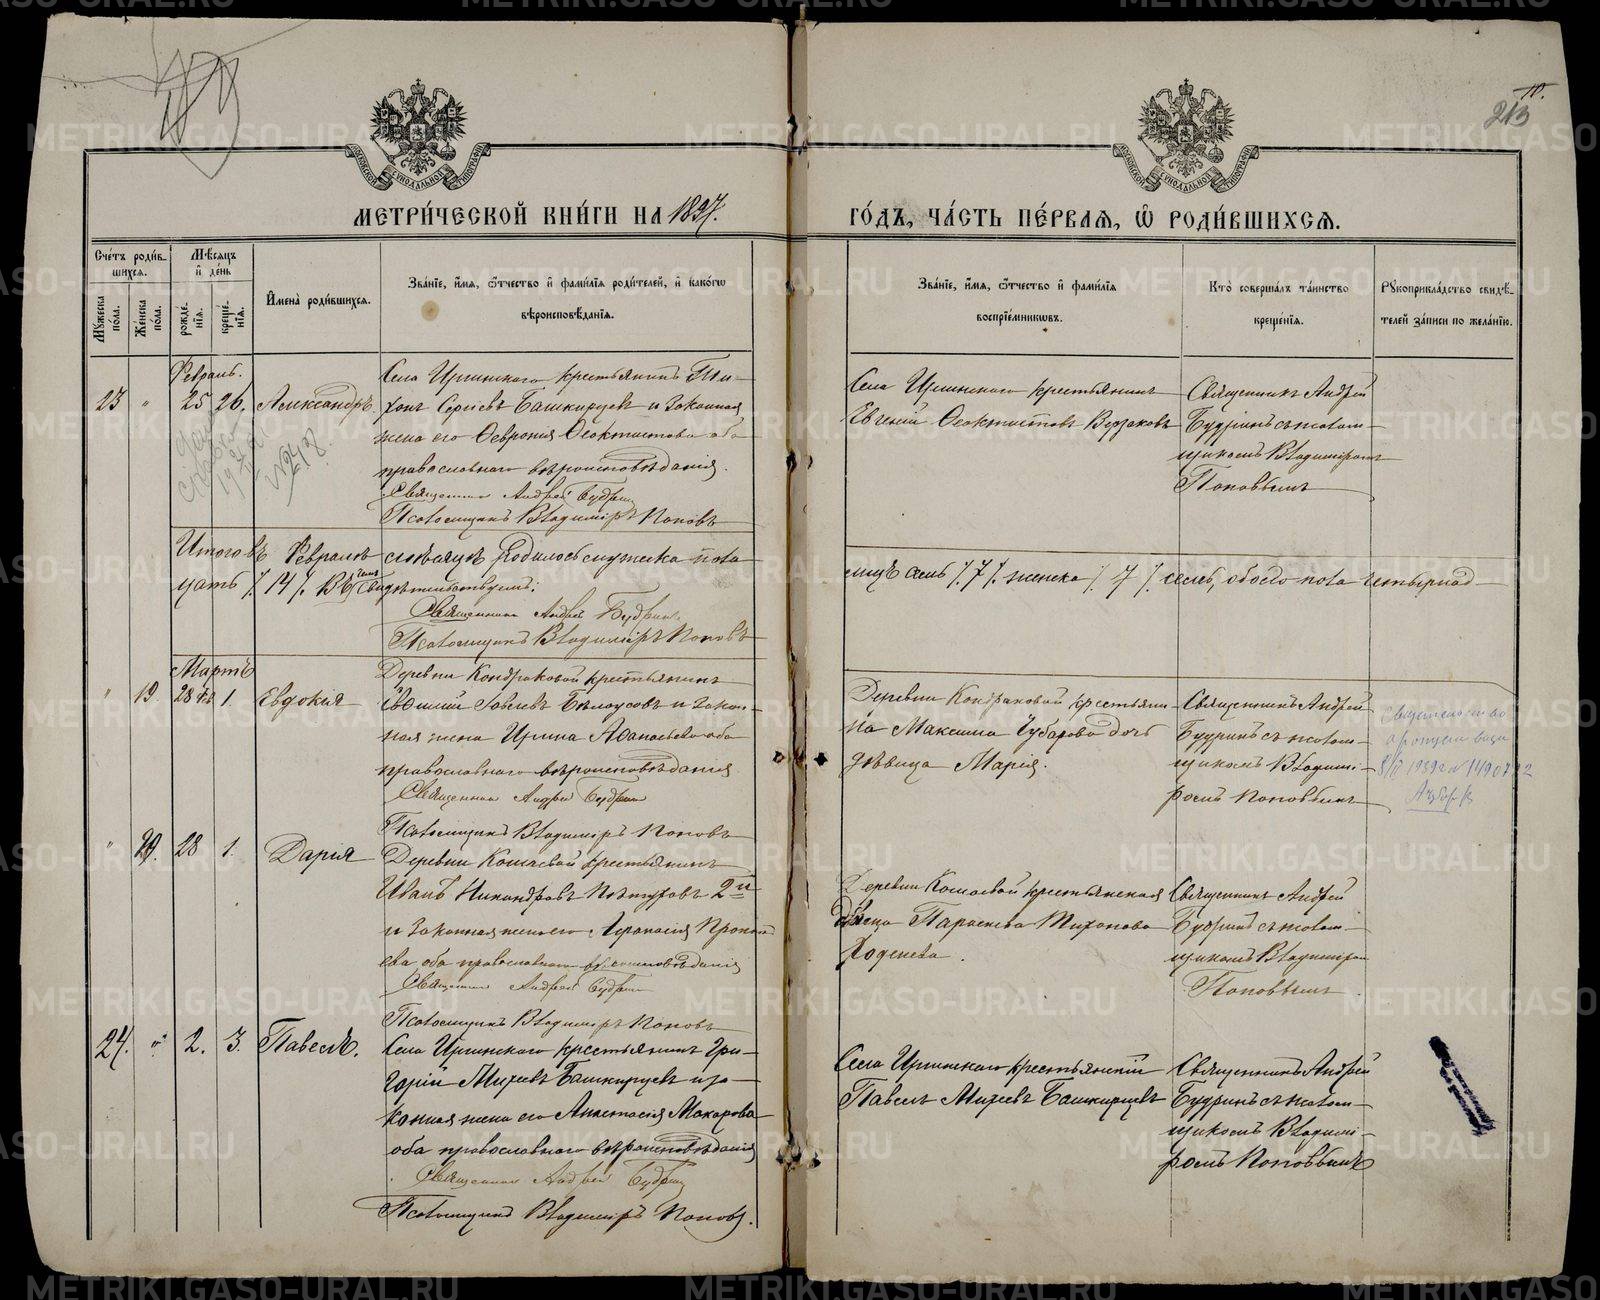 213
МЕТРИ́ЧЕСКОЙ КНИ́ГИ НА 1897.
ГО́ДЪ, ЧА́СТЬ ПЕ́РВАЯ, Ѿ РОДИ́ВШИХСЯ.
Сче́тъ роди́вшихся.
Мѣ́сяцъ и́ де́нь
Му́жеска по́ла.
Же́нска по́ла.
рожде́нія.
креще́нія.
И́мена̀ роди́вшихся.
Зва́ніе, и́мя, ѻ҆́тчество и҆ фами́лія роди́телей, и҆ како́гѡ
вѣроисповѣ́данія.
Зва́ніе, и҆́мя, ѻ҆́тчество и҆ фами́лія
воспріе́мниковъ.
Кто̀ соверша́лъ та́инство
креще́нія.
Рꙋкоприкла́дство свидѣ́-
телей за́писи по жела́нію.
Февраль.
23 " 25 26. Александръ.
№ 248.
Села Иргинскаго крестьянинъ Ти-
хонъ Сергіевъ Башкирцевъ и законная
жена его Ѳеврония Ѳеоктистова оба
православнаго вѣроисповѣданія.
Священникъ Андрей Будринъ
Псаломщикъ Владиміръ Поповъ
Села Иргинскаго крестьянинъ
Евгеній Ѳеоктистовъ
Священникъ Андрей
Будринъ съ псалом-
щикомъ Владиміромъ
Поповымъ
Итого въ Февралѣ мѣсяцѣ родилось мужеска пола
лицъ семь /7/. женска /7/ семь, обоего пола четырнад-
цать /14/. Въ чемъ свидѣтельствуемъ:
Священникъ Андрей Будринъ.
Псаломщикъ Владиміръ Поповъ
Мартъ
" 19. 28 Фев 1. Евдокія
Деревни Кондраковой крестьянинъ
Гавіевъ Бѣлоусовъ и закон-
ная жена Ирина Аѳанасьева оба
православнаго вѣроисповѣданія
Священникъ Андрей Будринъ
Псаломщикъ Владиміръ Поповъ
Деревни Кондраковой крестьяни-
на Максима Чубарова дочь
дѣвица Марія.
Священникъ Андрей
Будринъ съ псалом-
щикомъ Владимі-
ромъ Поповымъ
" 20. 28 1. Дарія
Деревни Кошаевой крестьянинъ
Иванъ Никандровъ 2й
и законная жена его Афанасія Прокопі-
ева оба православнаго вѣроисповѣданія
Священникъ Андрей Будринъ
Псаломщикъ Владиміръ Поповъ
Деревни Кошаевой крестьянская
дѣвица Параскева Тихонова
Ходенева.
Священникъ Андрей
Будринъ съ псалом-
щикомъ Владиміромъ
Поповымъ
24. " 2. 3. Павелъ.
Села Иргинскаго крестьянинъ Гри-
горій Михеевъ Башкирцевъ и за-
конная жена его Анастасія Макарова
оба православнаго вѣроисповѣданія
Священникъ Андрей Будринъ
Псаломщикъ Владиміръ Поповъ.
Села Иргинскаго крестьянскій
Павелъ Михеевъ Башкирцевъ
Священникъ Андрей
Будринъ съ псалом-
щикомъ Владимі-
ромъ Поповымъ
METRIKI.GASO-URAL.RU